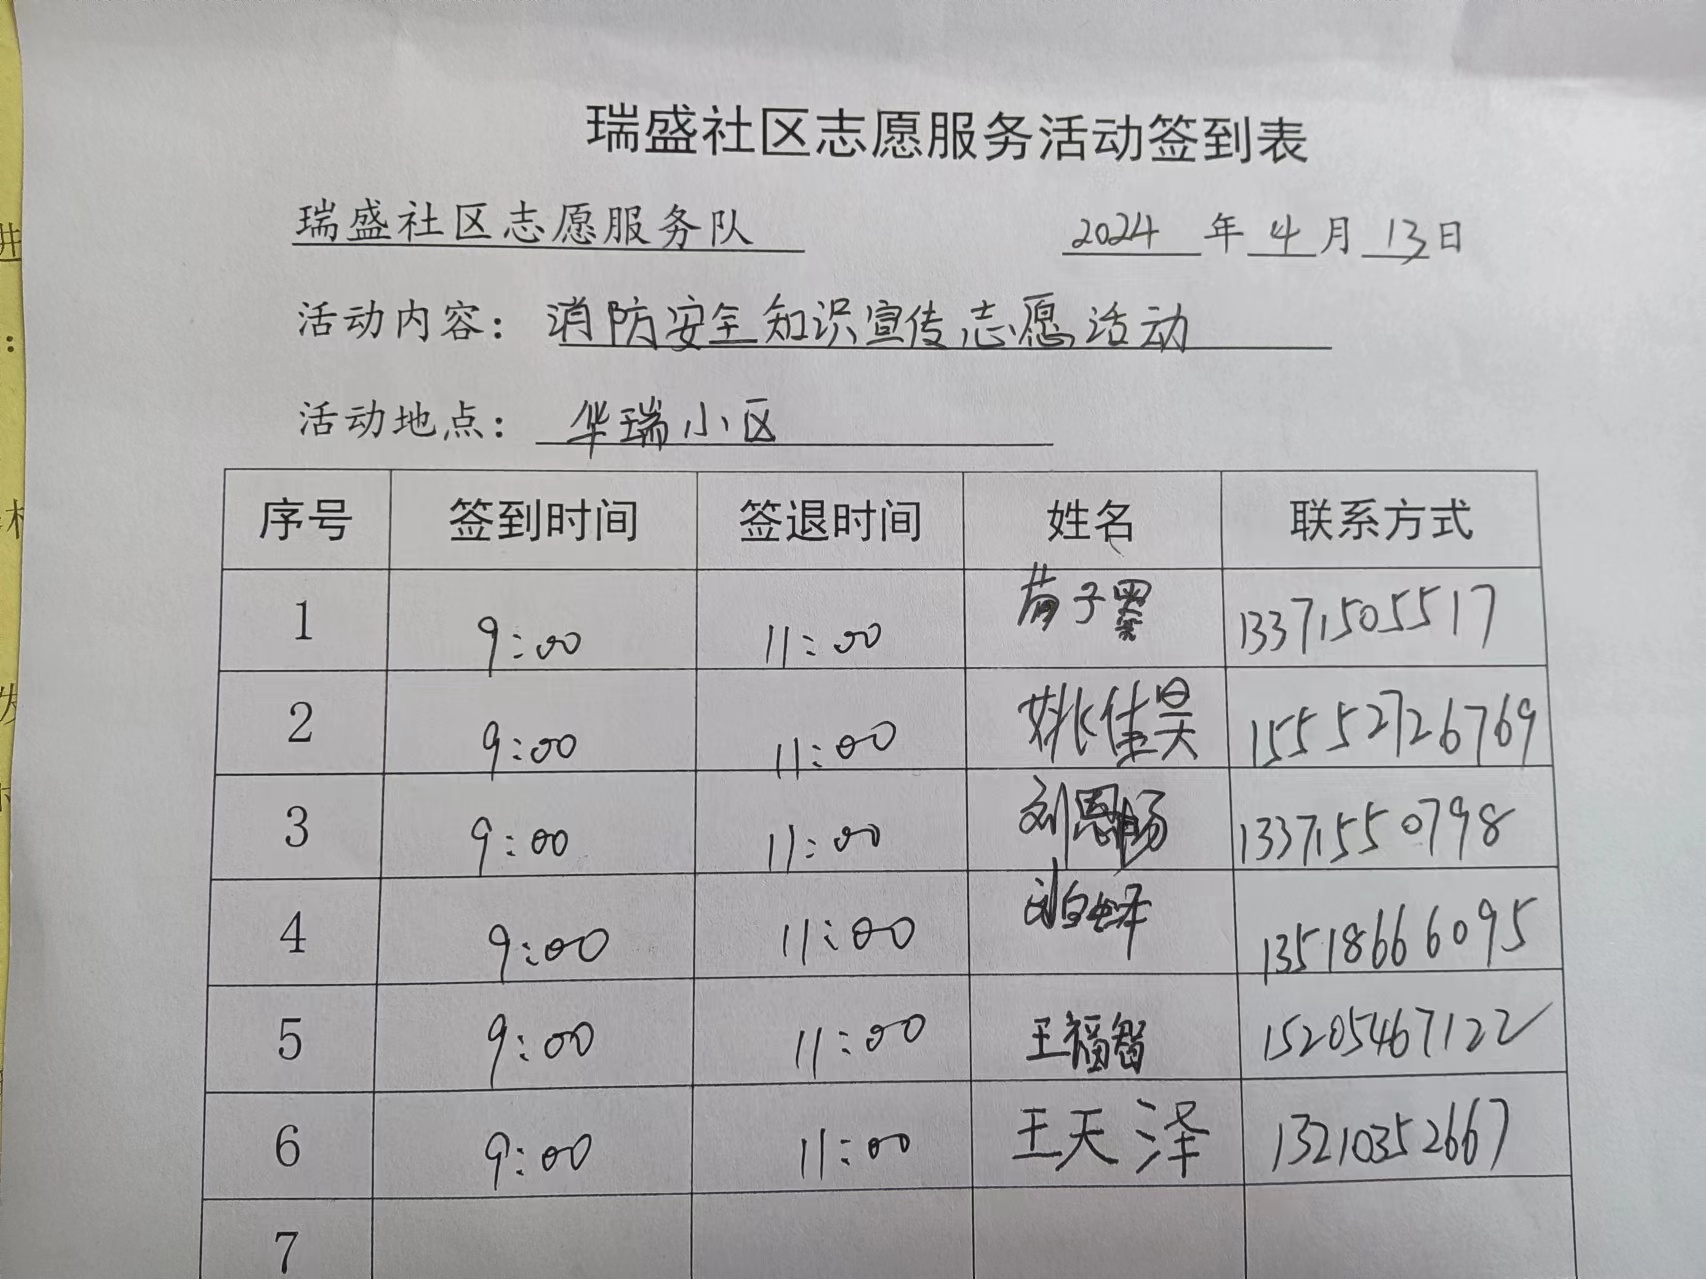 瑞盛社区志愿服务活动签到表
瑞盛社区志愿服务队 2024 年 4 月 13 日
活动内容: 消防安全知识宣传志愿活动
活动地点: 华瑞小区
序号 签到时间 签退时间 姓名 联系方式
1 9:00 11:00 子墨 13371505517
2 9:00 11:00 姚佳昊 15552726769
3 9:00 11:00 刘恩畅 13371550798
4 9:00 11:00 13518666095
5 9:00 11:00 王福智 15205467122
6 9:00 11:00 王天泽 13210352667
7